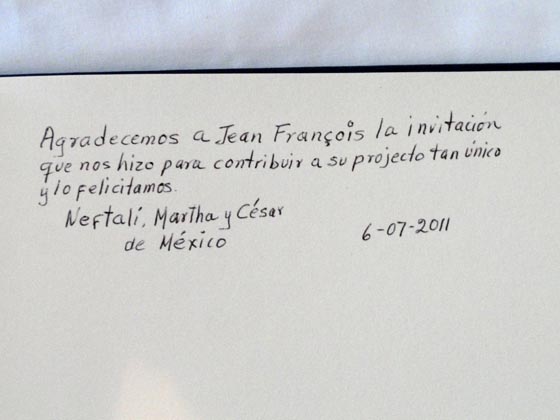 Agradecemos a Jean François la invitación
que nos hizo para contribuir a su projecto tan único
y lo felicitamos.
Neftalí, Martha y César
de México
6-07-2011